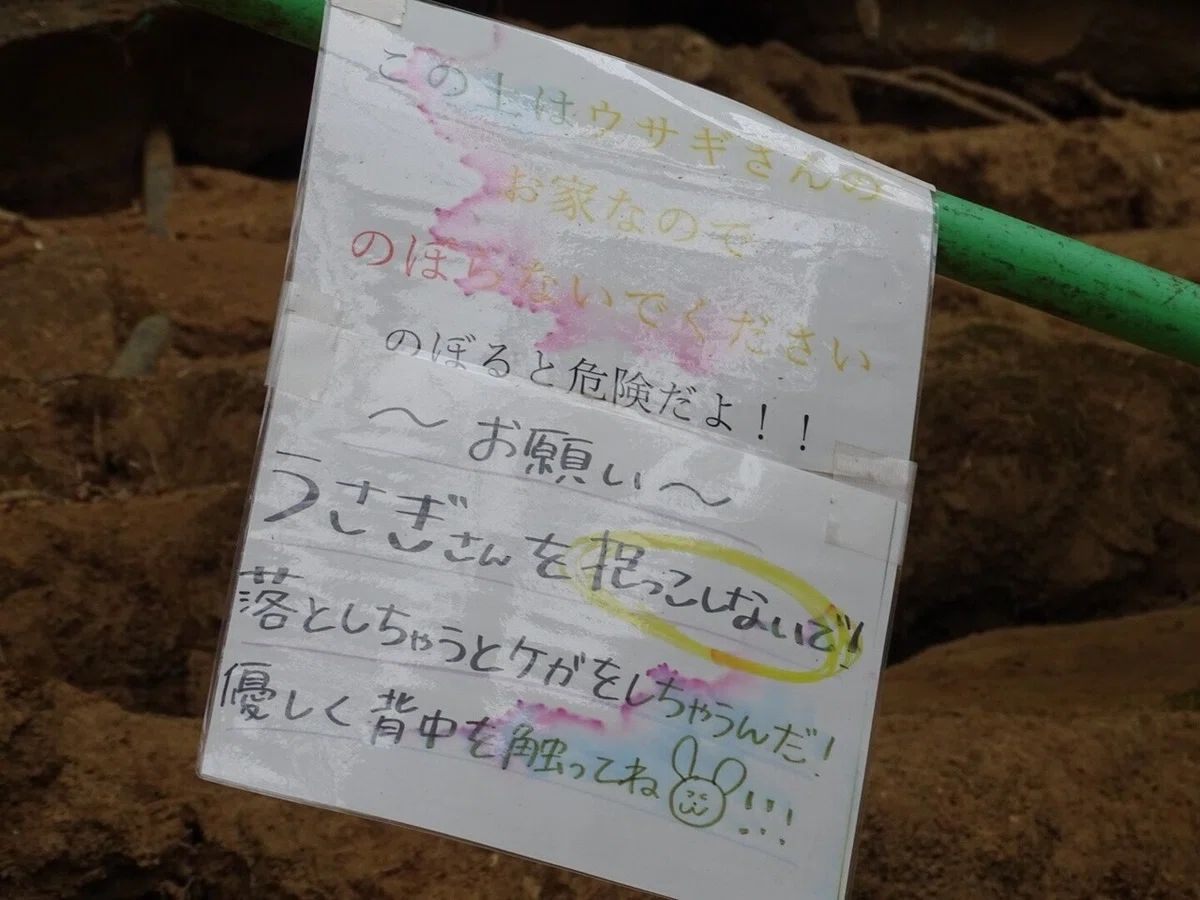 この土はウサギさんの
お家なので
のぼらないでください
のぼると危険だよ！！
～お願い～
うさぎさんを抱っこしないで!
落としちゃうとケガをしちゃうんだ!
優しく背中を触ってね!!!